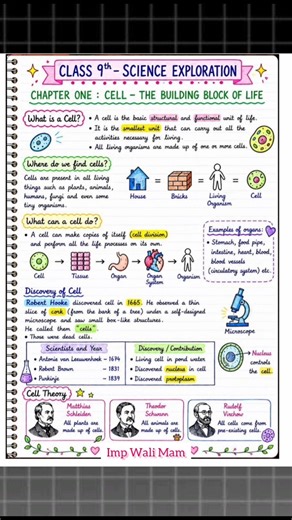 CLASS 9th - SCIENCE EXPLORATION
CHAPTER ONE : CELL - THE BUILDING BLOCK OF LIFE
What is a Cell?
• A cell is the basic structural and functional unit of life.
• It is the smallest unit that can carry out all the
activities necessary for living.
• All living organisms are made up of one or more cells.
Where do we find cells?
Cells are present in all living
things such as plants, animals,
humans, fungi and even some
tiny organisms.
House
Bricks
Living
Organism
Cell
What can a cell do?
• A cell can make copies of itself (cell division)
and perform all the life processes on its own.
Cell
Tissue
Organ
Organ
System
Organism
Examples of organs:
• Stomach, food pipe,
intestine, heart, blood,
blood vessels
(circulatory system) etc.
Discovery of Cell
Robert Hooke discovered cell in 1665. He observed a thin
slice of cork (from the bark of a tree) under a self-designed
microscope and saw small box-like structures.
He called them "cells".
• Those were dead cells.
Microscope
Scientists and Year
Discovery / Contribution
• Antonie van Leeuwenhoek - 1674
• Living cell in pond water
• Robert Brown - 1831
• Discovered nucleus in cell
• Purkinje - 1839
• Discovered protoplasm
Nucleus
controls
the cell.
Cell Theory
Matthias
Schleiden
All plants are
made up of cells.
Theodor
Schwann
All animals are
made up of cells.
Rudolf
Virchow
All cells come from
pre-existing cells.
Imp Wali Mam